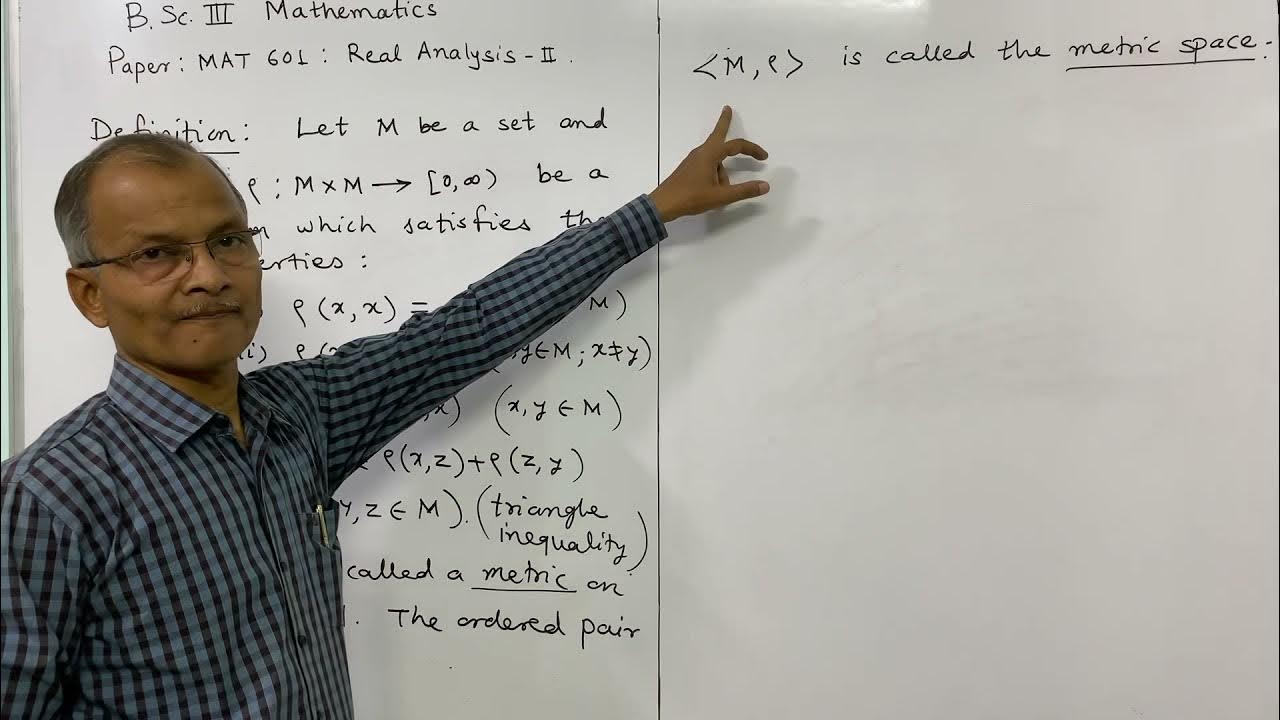 B.Sc. III Mathematics
Paper: MAT 601: Real Analysis-II.
Definition: Let M be a set and
ρ : M×M → [0,∞) be a
which satisfies the
erties :
ρ(x, x) = M)
i) ρ( y∈M ; x≠y)
x) (x, y ∈ M)
ρ(x,z)+ρ(z, y)
y, z ∈ M). (triangle
inequality)
called a metric on
The ordered pair
<M, ρ> is called the metric space.